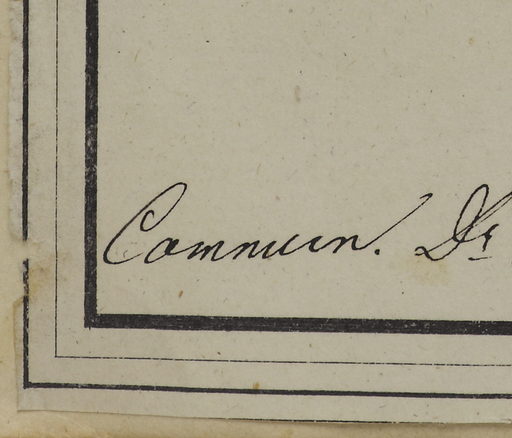 Commun. Dr